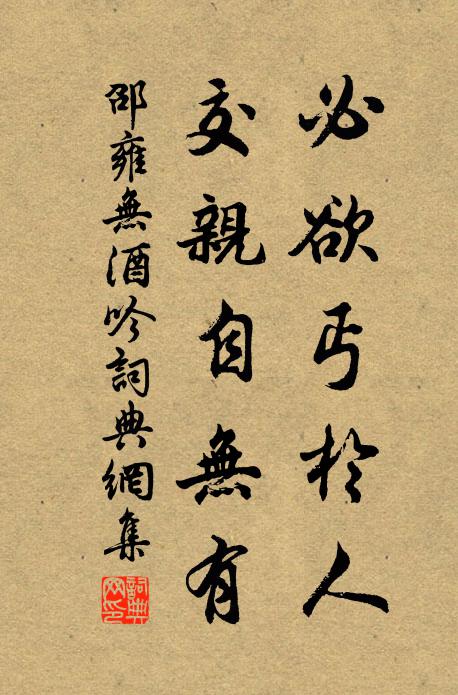 必欲丐於人
交親自無有
邵雍無酒吟詞典網集
詞典網印